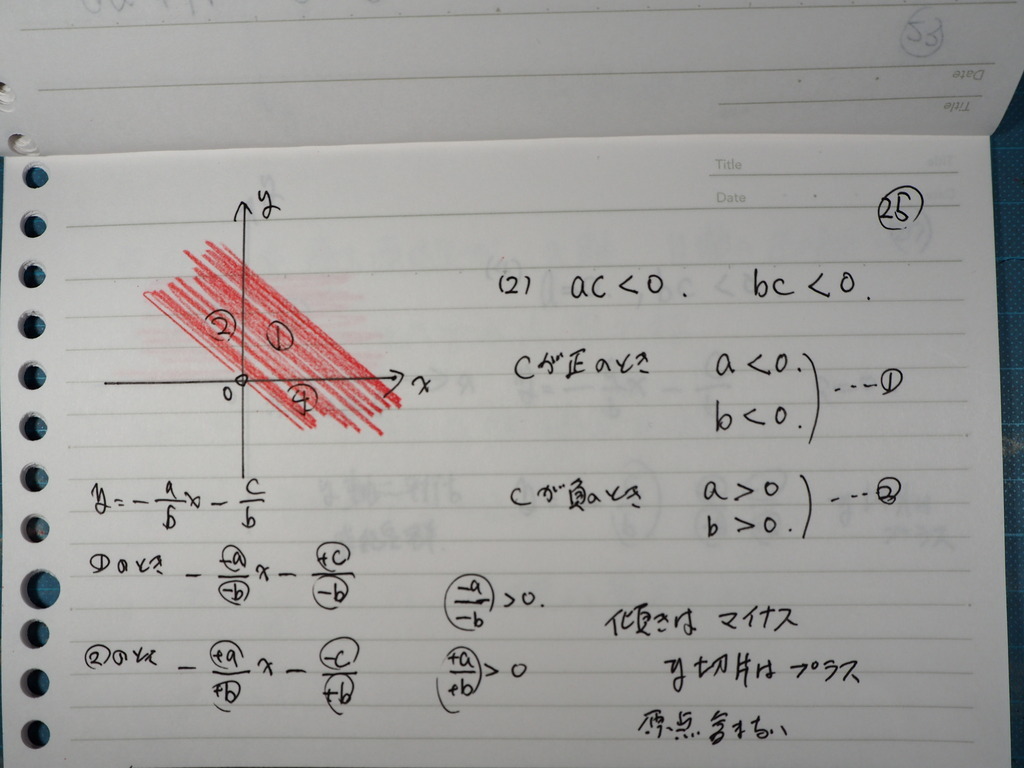 53
Date
Title
Title
Date
㉕
y
② ①
0 x
④
(2) ac<0. bc<0.
Cが正のとき a<0.
b<0. )‐‐‐‐①
Cが負のとき a>0
b>0. )‐‐‐‐②
y=-a/bx-c/b
①のとき -+a/-bx-+c/-b (-a/-b)>0.
②のとき -+a/+bx--c/+b (+a/+b)>0
傾きは マイナス
y切片は プラス
原点含まない